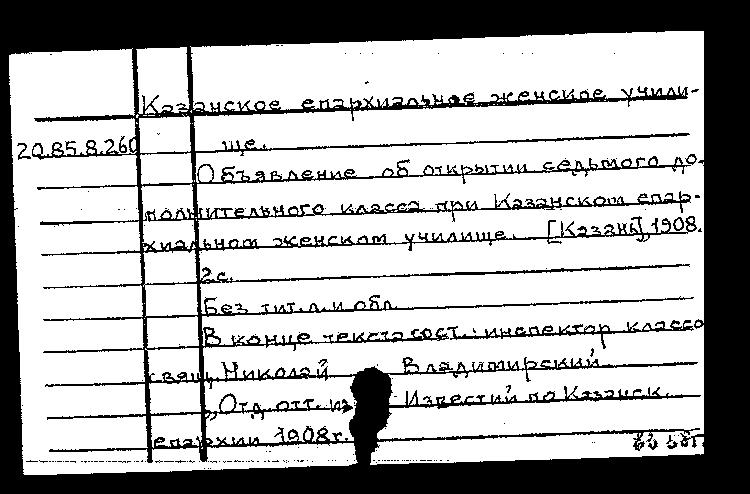 Казанское епархиальное женское учили-
20.85.8.260 ще.
Объявление об открытии седьмого до-
полнительного класса при Казанском епар-
хиальном женском училище. [Казань], 1908.
2с.
Без тит.л. и обл.
В конце текста сост.: инспектор классо
свящ. Николай Владимирский
"Отд. отт. из Известий по Казанск.
епархии 1908г.